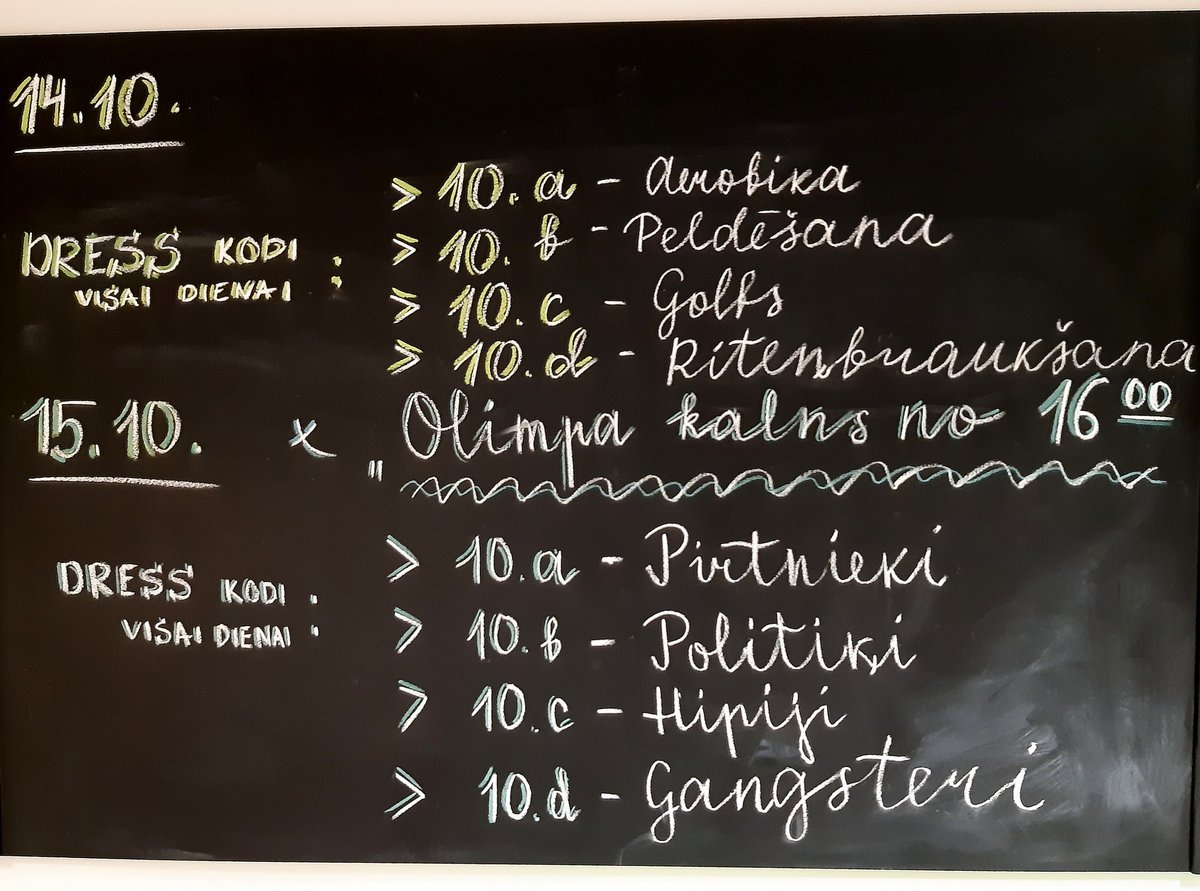 14.10.
DRESS KODI
VISAI DIENAI :
> 10.a - Aerobika
> 10.b - Peldēšana
> 10.c - Golfs
> 10.d - Riteņbraukšana
15.10. x "Olimpa kalns no 16 00
DRESS KODI
VISAI DIENAI :
> 10.a - Pirtnieki
> 10.b - Politiķi
> 10.c - Hipiji
> 10.d - Gangsteri